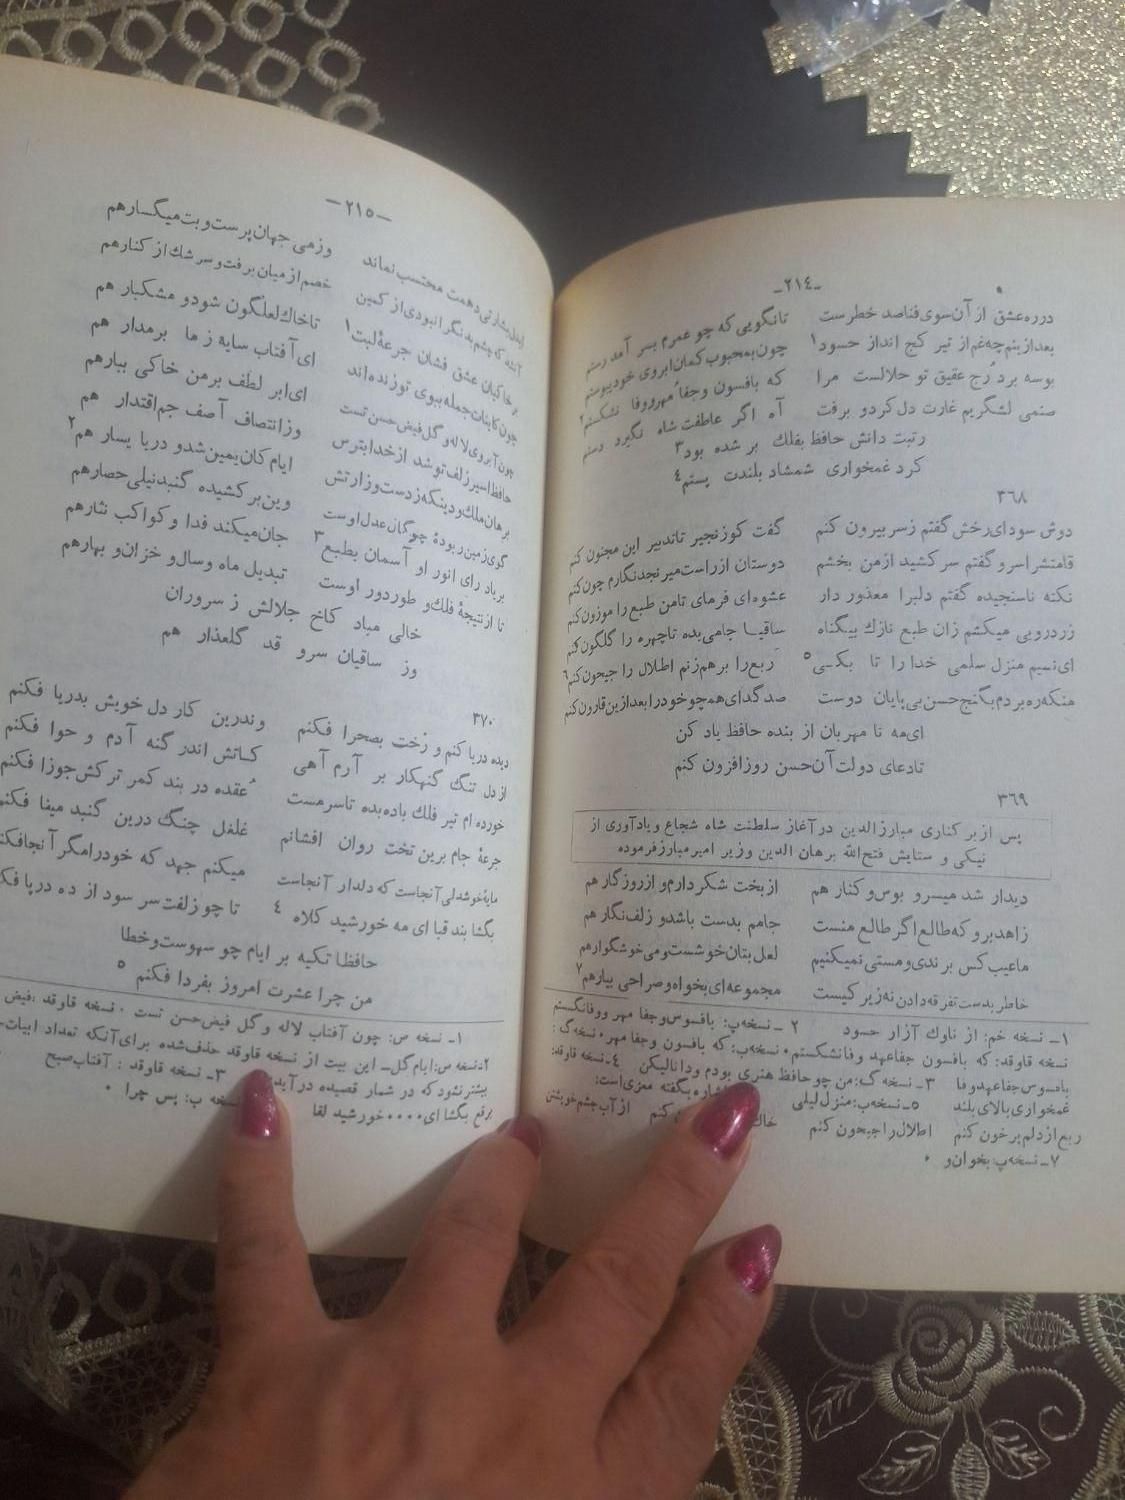 -۲۱٤-
در ره عشق از آن سوی فنا صد خطرست تا نگویی که چو عمرم بسر آمد رستم
بعد از ینم چه غم از تیر کج انداز حسود۱ چون بمحبوب کمان ابروی خود پیوستم
بوسه بر درج عقیق تو حلالست مرا که بافسون و جفا مهر و وفا نشکستم۲
صنمی لشگریم غارت دل کرد و برفت آه اگر عاطفت شاه نگیرد دستم
رتبت دانش حافظ بفلك بر شده بود۳
کرد غمخواری شمشاد بلندت پستم٤
۳٦۸
دوش سودای رخش گفتم زسر بیرون کنم گفت کو زنجیر تا تدبیر این مجنون کنم
قامتش را سرو گفتم سر کشید از من بخشم دوستان از راست میرنجد نگارم چون کنم
نکته ناسنجیده گفتم دلبرا معذور دار عشوه‌ای فرمای تا من طبع را موزون کنم
زردرویی میکشم زان طبع نازك بیگناه ساقیا جامی بده تا چهره را گلگون کنم
ای نسیم منزل سلمی خدا را تا بکی۵ ربع را بر هم زنم اطلال را جیحون کنم٦
منکه ره بردم بگنج حسن بی پایان دوست صد گدای همچو خود را بعد ازین قارون کنم
ای مه نا مهربان از بنده حافظ یاد کن
تا دعای دولت آن حسن روزافزون کنم
۳٦۹
پس از بر کناری مبارزالدین در آغاز سلطنت شاه شجاع و یادآوری از
نیکی و ستایش فتح الله برهان الدین وزیر امیر مبارز فرموده
دیدار شد میسر و بوس و کنار هم از بخت شکر دارم و از روزگار هم
زاهد برو که طالع اگر طالع منست جامم بدست باشد و زلف نگار هم
ما عیب کس برندی و مستی نمیکنیم لعل بتان خوشست و می خوشگوار هم
خاطر بدست تفرقه دادن نه زیرکیست مجموعه‌ای بخواه و صراحی بیار هم۷
۱ـ نسخه خم: از ناوك آزار حسود ۲ ـ نسخه پ: بافسوس و جفا مهر و وفا نگسستم
نسخه قاوقد: که بافسون جفا عهد وفا نشکستم۰ نسخه ب: که بافسون وجفا مهر۰ نسخه گ:
بافسوس جفا عهد وفا ۳ـ نسخه گ: من چو حافظ هنری بودم و دانا لیکن ٤ـ نسخه قاوقد:
غمخواری بالای بلند ۵ـ نسخه پ: منزل لیلی بگفته معزی است:
ربع از دلم پر خون کنم اطلال را جیحون کنم خاك کنم از آب چشم خویشتن
۷ـ نسخه پ: بخوان و ۰
-۲۱۵-
ای دل بشارتی دهمت محتسب نماند وز می جهان پرست و بت میگسار هم
آنشد که چشم بد نگرانبودی از کمین خصم از میان برفت و سرشك از کنار هم
بر خاکیان عشق فشان جرعهٔ لبت۱ تا خاك لعلگون شود و مشکبار هم
چون کاینات جمله ببوی تو زنده‌اند ای آفتاب سایه ز ما برمدار هم
چون آبروی لاله و گل فیض حسن تست ای ابر لطف بر من خاکی ببار هم
حافظ اسیر زلف تو شد از خدا بترس وز انتصاف آصف جم اقتدار هم
برهان ملك و دین که ز دست وزارتش ایام کان یمین شد و دریا یسار هم۲
گوی زمین ربودهٔ چوگان عدل اوست وین بر کشیده گنبد نیلی حصار هم
بر یاد رای انور او آسمان بطبع۳ جان میکند فدا و کواکب نثار هم
تا از نتیجهٔ فلك و طور دور اوست تبدیل ماه و سال و خزان و بهار هم
خالی مباد کاخ جلالش ز سروران
وز ساقیان سرو قد گلعذار هم
۳۷۰
دیده دریا کنم و رخت بصحرا فکنم وندرین کار دل خویش بدریا فکنم
از دل تنگ گنهکار بر آرم آهی کاتش اندر گنه آدم و حوا فکنم
خورده ام تیر فلك باده بده تا سرمست عقده در بند کمر ترکش جوزا فکنم
جرعهٔ جام برین تخت روان افشانم غلغل چنگ درین گنبد مینا فکنم
مایهٔ خوشدلی آنجاست که دلدار آنجاست میکنم جهد که خود را مگر آنجا فکنم
بگشا بند قبا ای مه خورشید کلاه ٤ تا چو زلفت سر سود از ده در پا فکنم
حافظا تکیه بر ایام چو سهوست و خطا
من چرا عشرت امروز بفردا فکنم ۵
۱ـ نسخه ص: چون آفتاب لاله و گل فیض حسن تست ۰ نسخه قاوقد :فیض
۲ـ نسخه ص: ایام گل ـ این بیت از نسخه قاوقد حذف شده برای آنکه تعداد ابیات
بیشتر نشود که در شمار قصیده در آید ۳ـ نسخه قاوقد : آفتاب صبح
بگشا ای۰۰۰۰ خورشید لقا نسخه پ: پس چرا ۰